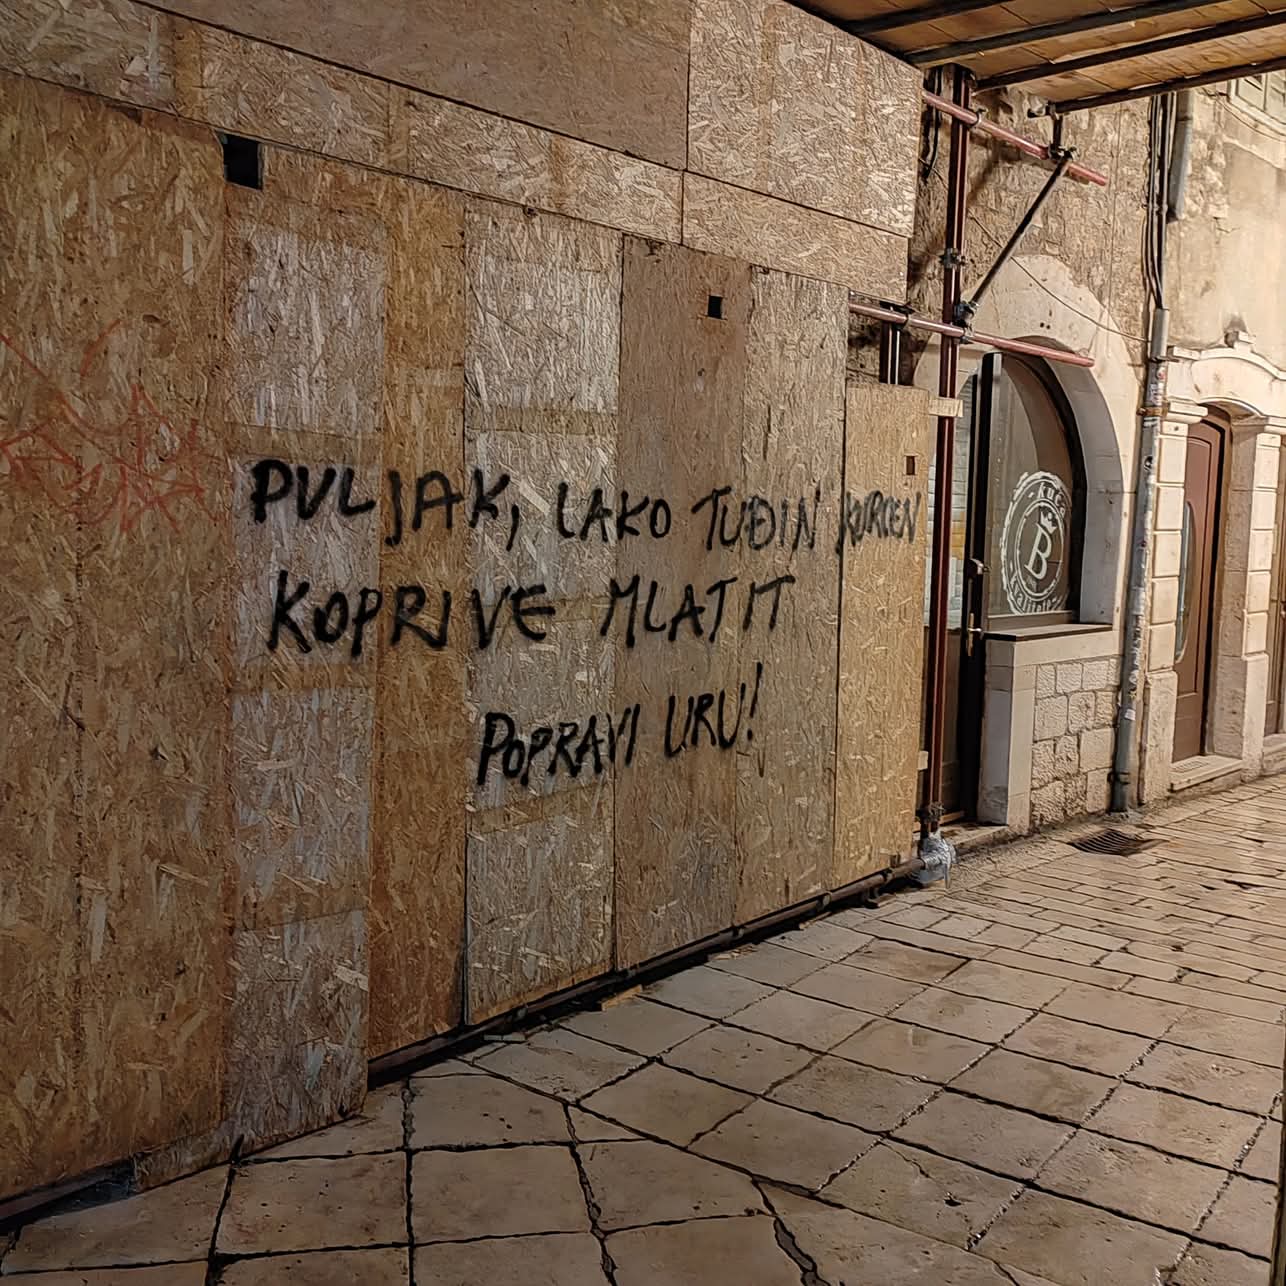 PULJAK, LAKO TUĐIN KURCEN
KOPRIVE MLATIT
POPRAVI URU!
B